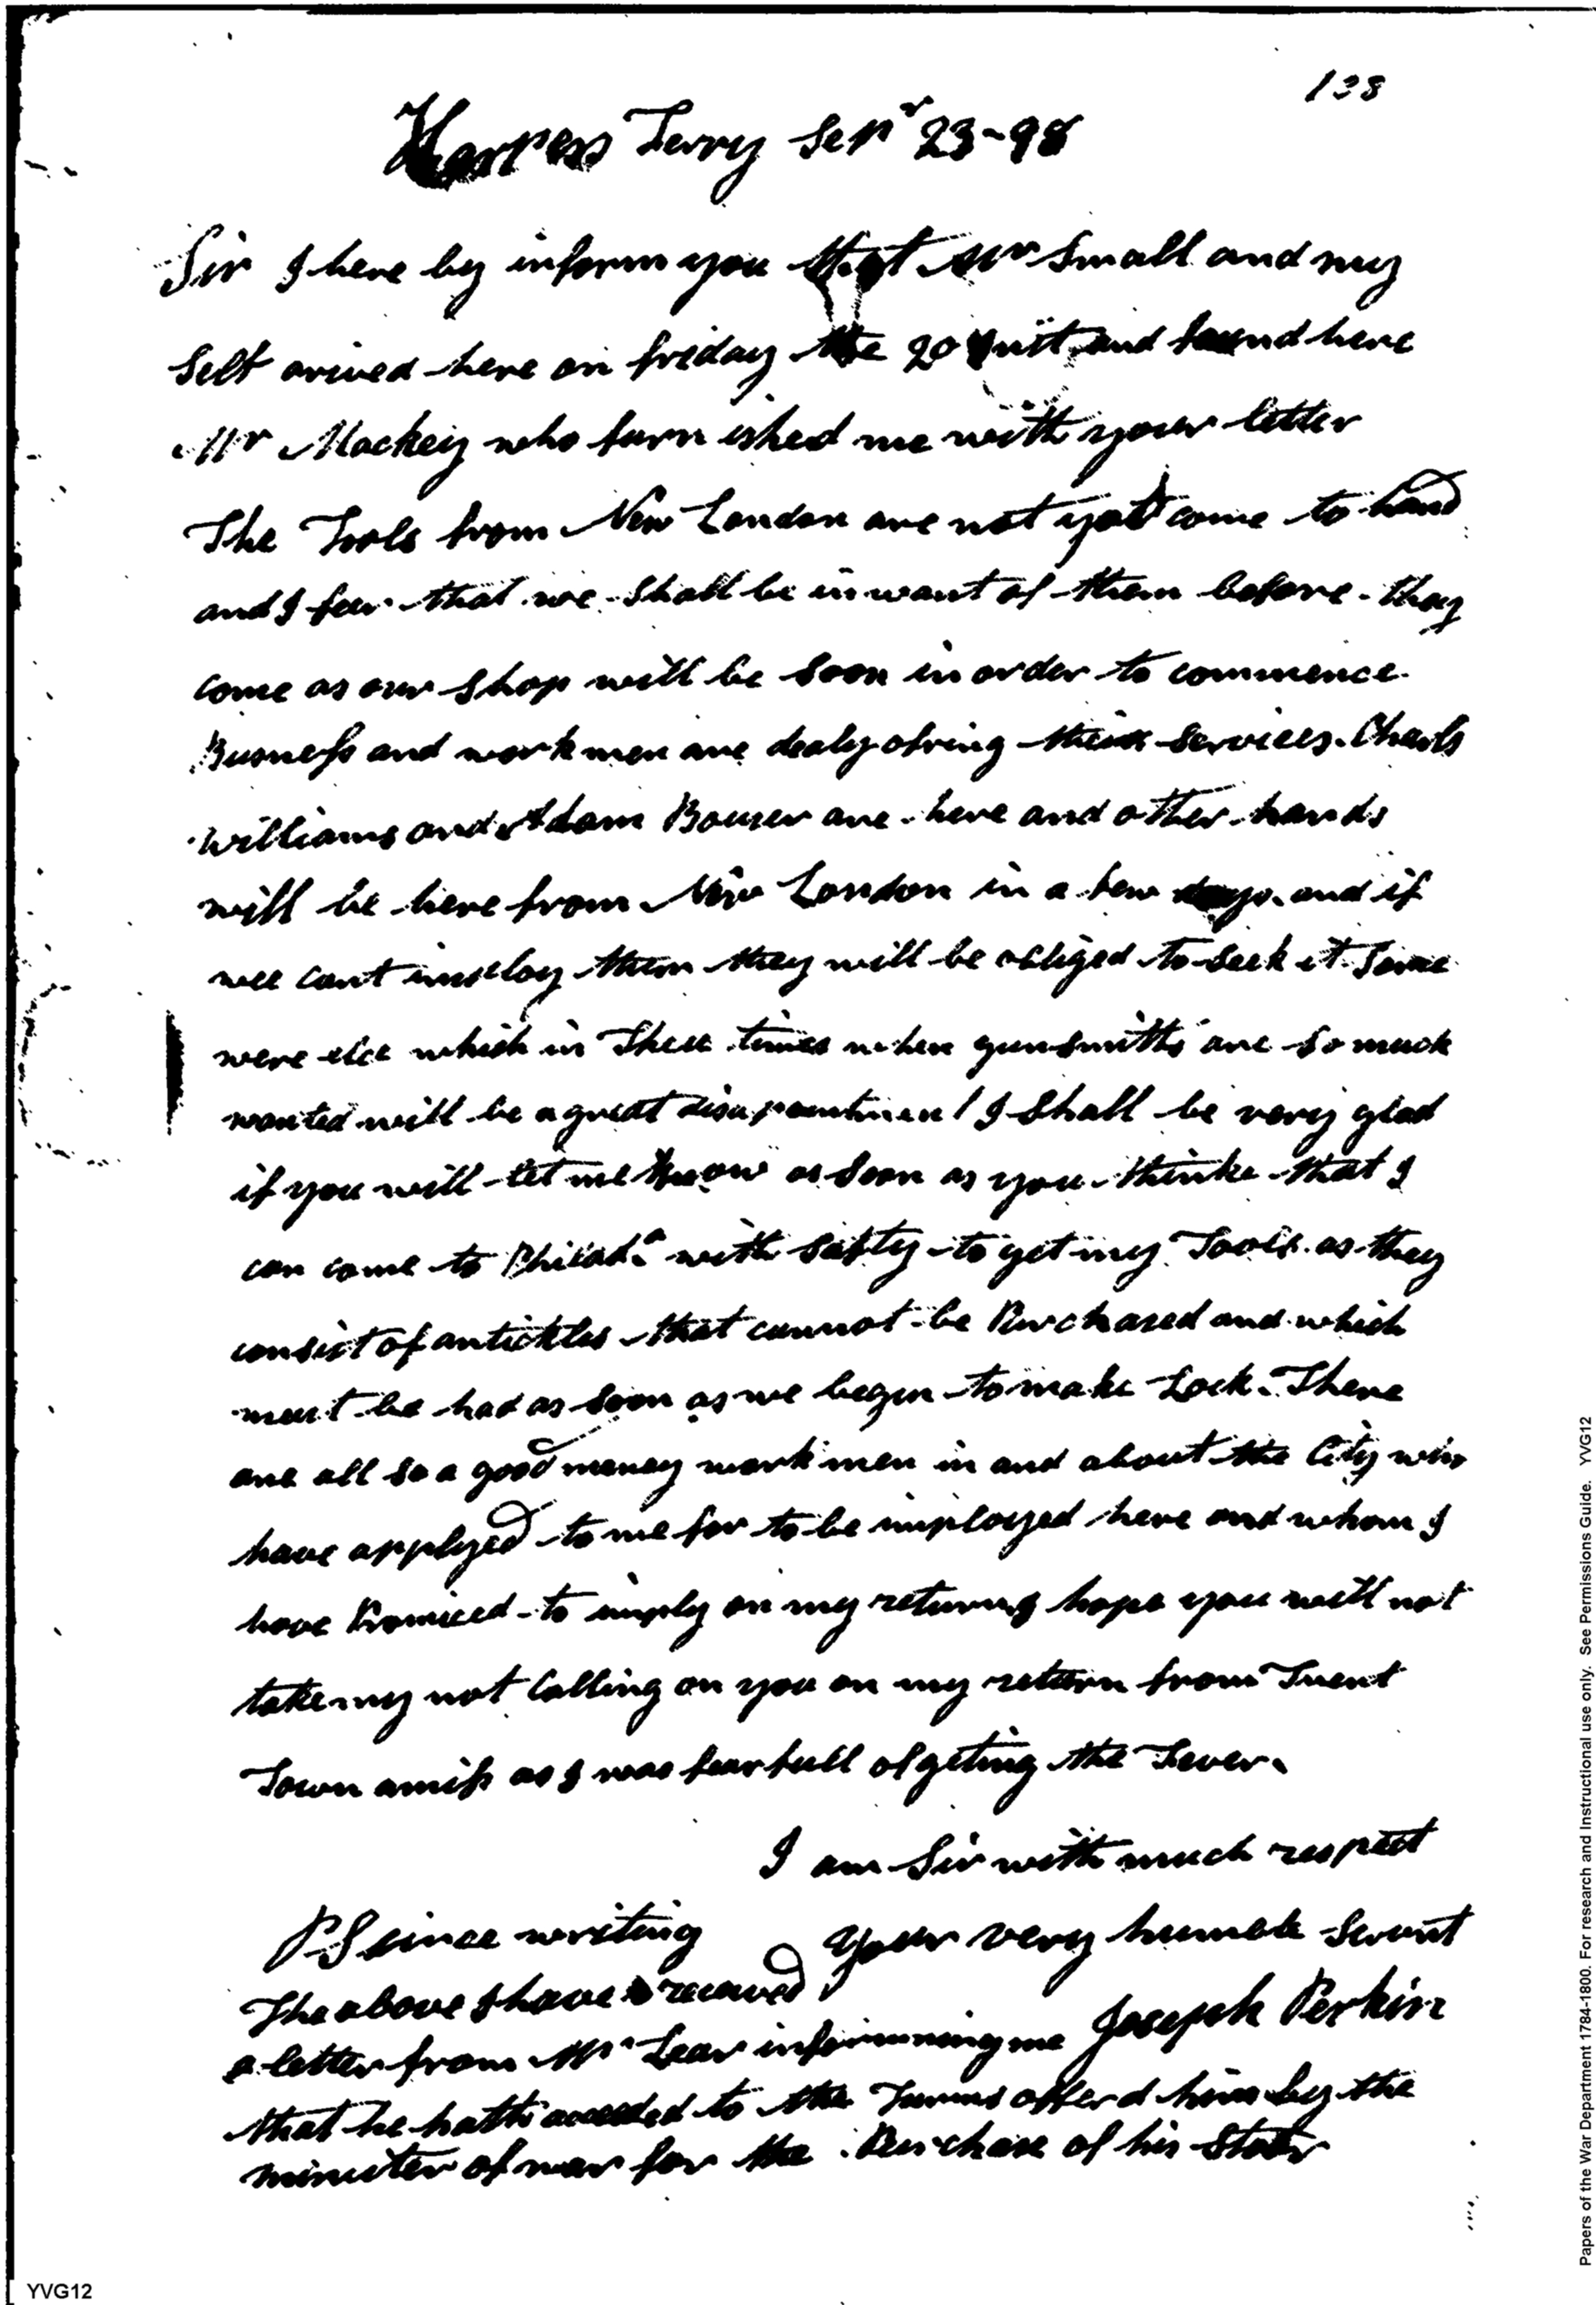 138
Harpers Ferry Sepr 23-98
Sir I here by inform you that Mr Small and my
Self arived here on friday the 20 Inst and found here
Mr Mackey who furn ished me with your letter
The Tools from New London are not yet come to hand
and I fear that we Shall be in want of them before they
come as our shop will be soon in order to commence
Busness and work men are dealy ofring their Services. Charls
Williams and Adam Bouser are here and other hands
will be here from New London in a few days. and if
wee cant imploy them they will be obliged to Seek it Some
were else which in These times when gunsmiths are so much
wanted will be a great disapointment I Shall be very glad
if you will let me know as soon as you thinke that I
can come to Philada with safty to get my Tools as they
consist of artickles that cannot be Purchased and which
must be had as soon as we begin to make Lock. There
are all so a good meney work men in and about the City who
have applyed to me for to be imployed here and whom I
have Promiced to imply on my return I hope you will not
take my not Calling on you on my return from Trent
Town amiss as I was fearfull of geting the Fever.
I am Sir with much respect
your very humble Servant
Joseph Perkin
PS since writing
The above I have received
a letter from Mr Lear informing me
that he hath acceded to the Turms offerd him by the
minister of war for the Purchase of his
YVG12
Papers of the War Department 1784-1800. For research and Instructional use only. See Permissions Guide. YVG12